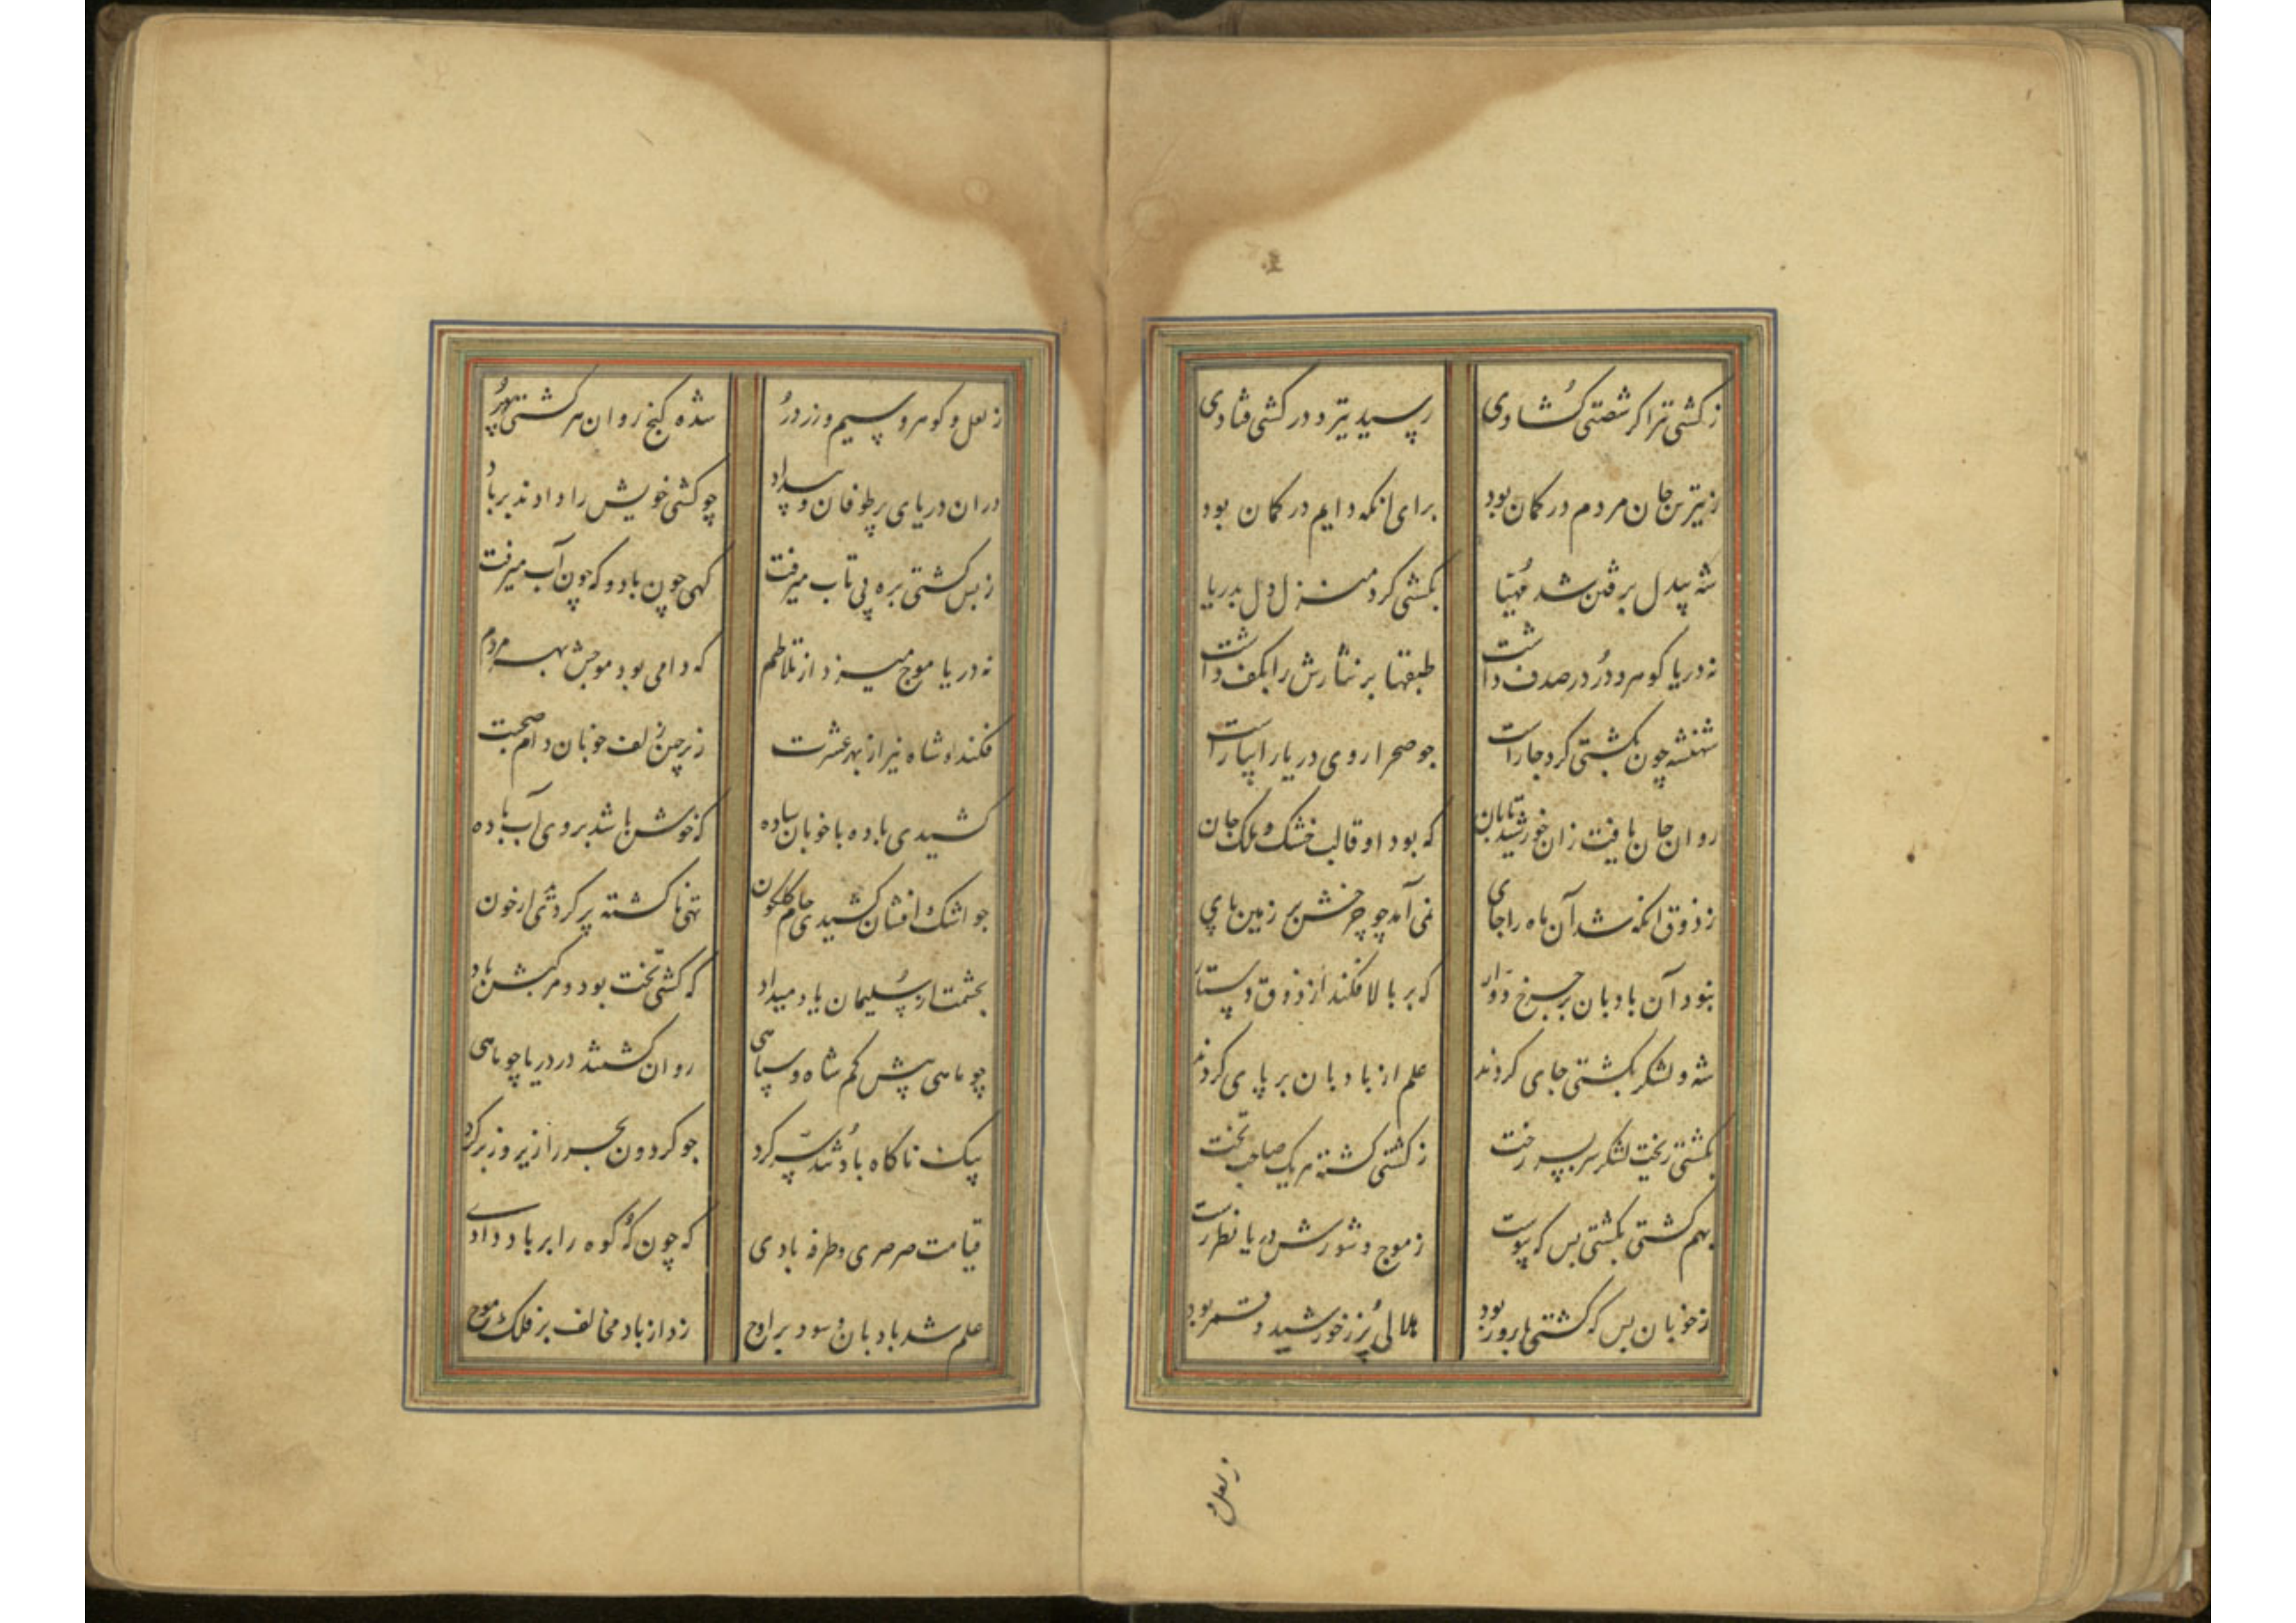 ز کشتی تیر اگر شصتی کشادی رسیدی تیر و در کشتی فتادی
ز تیرش جان مردم در کمان بود برای آنکه دایم در کمان بود
شه بیدل برفتن شد مهیا بکشتی کرد منزل دل بدریا
نه دریا کوهر و در در صدف داشت طبقها بر نثارش را بکف داشت
شهنشه چون بکشتی کرد جا راست چو صحرا روی دریا را بیاراست
روان جان یافت زان خورشید تابان که بود او قالب خشک و ملک جان
ز ذوق آنکه شد آن ماه را جای نمی آمد چو چرخش بر زمین پای
نبود آن بادبان بر چرخ دوار که بر بالا فکند از ذوق دستار
شه و لشکر بکشتی جای کردند علم از بادبان بر پای کردند
بکشتی ریخت لشکر سربسر رخت ز کشتی کشته هر یک صاحب تخت
بهم کشتی بکشتی بس که پیوست ز موج و شورش دریا نظر بست
ز خوبان بس که کشتی بارور بود هلالی پر ز خورشید و قمر بود
ز لعل و
ز لعل و کوهر و سیم و زر و در شده کنج روان هر کشتی پر
در آن دریای پر طوفان و بیداد چو کشتی خویش را دادند بر باد
ز بس کشتی بره بی تاب میرفت کهی چون باد و که چون آب میرفت
نه دریا موج میزد از تلاطم که دامی بود موجش بهر مردم
فکند او شاه نیز از بهر عشرت ز پرچین زلف خوبان دام صحبت
کشیدی باده با خوبان ساده که خوش باشد بروی آب باده
چو اشک افشان کشیدی جام کلکون تهی ناکشته پر کردی از خون
بحشمت از سلیمان یاد میداد که کشتی تخت بود و مرکبش باد
چو ماهی پیش کم شاه و سپاهی روان کشتند در دریا چو ماهی
بیک ناکاه باد تند سر کرد چو کردون بحر را زیر و زبر کرد
قیامت صرصری و طرفه بادی که چون که کوه را بر باد دادی
علم شد بادبان و سود بر اوج زد از باد مخالف بر فلک موج